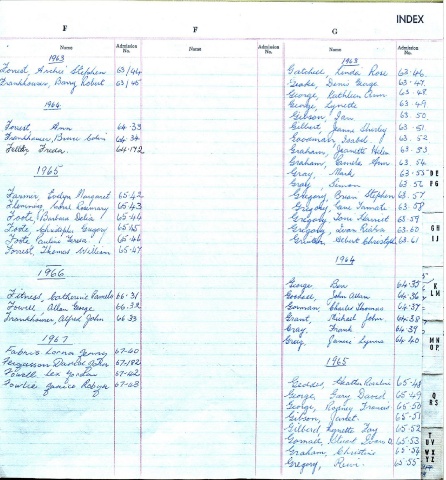 INDEX
F
F
G
Name
Admission No.
Name
Admission No.
Name
Admission No.
1963
Forrest, Archie Stephen 63/44
Frankhouser, Barry Robert 63/45
1964
Forrest, Ann 64.33
Frankhouser, Bruce 64.34
Freda 64.172
1965
Farmer, Evelyn Margaret 65.42
Flemming, Rosemary 65.43
Foote, Barbara Delia 65.44
Foote Christopher Gregory 65.45
Foote Pauline Teresa 65.46
Forrest, Thomas William 65.47
1966
Fitness, Catherine Pamela 66.31
Fowell Allan George 66.32
Frankhouser, Alfred John 66.33
1967
Fabris Lorna Jenny 67.40
Fergusson David 67.182
Fowell Lex Gordon 67.42
Fowler Janice Robyn 67.43
1963
Gatehell, Linda Rose 63.46
Denis George 63.47
George, Kathleen Ann 63.48
George, Lynette 63.49
Gibson, Ian 63.50
Gilbert, Joanne Shirley 63.51
Goodman, Isabel 63.52
Graham, Jeanette Helen 63.53
Graham, Pamela Ann 63.54
Gray, Mark 63.55
Gray, Simon 63.56
Gregory, Brian Stephen 63.57
Gregory, Jane 63.58
Gregory, Harriet 63.59
Gregory, 63.60
Robert Christoph 63.61
1964
George, Ben 64.35
John Allan 64.36
Gorman, Charles Thomas 64.37
Grant, Michael John 64.38
Gray, Frank 64.39
Greig, James Lynne 64.40
1965
Geddes, Heather 65.48
George, Gary David 65.49
George, Rodney Francis 65.50
Gibson, Janet 65.51
Gilbert, Lynette Fay 65.52
Stuart 65.53
Graham, Christine 65.54
Gregory, 65.55
DE
FG
GH
IJ
K
LM
MN
OP
Q
RS
T
UV
WX
YZ